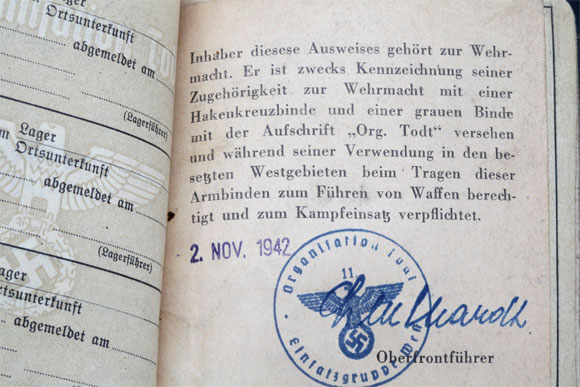 Lager
Ortsunterkunft
abgemeldet am
(Lagerführer)
Lager
Ortsunterkunft
abgemeldet am
(Lagerführer)
Lager
Ortsunterkunft
abgemeldet am
Inhaber diesese Ausweises gehört zur Wehr-
macht. Er ist zwecks Kennzeichnung seiner
Zugehörigkeit zur Wehrmacht mit einer
Hakenkreuzbinde und einer grauen Binde
mit der Aufschrift „Org. Todt" versehen
und während seiner Verwendung in den be-
setzten Westgebieten beim Tragen dieser
Armbinden zum Führen von Waffen berech-
tigt und zum Kampfeinsatz verpflichtet.
2. NOV. 1942
Organisation Todt
11
Einsatzgruppe West
Oberfrontführer